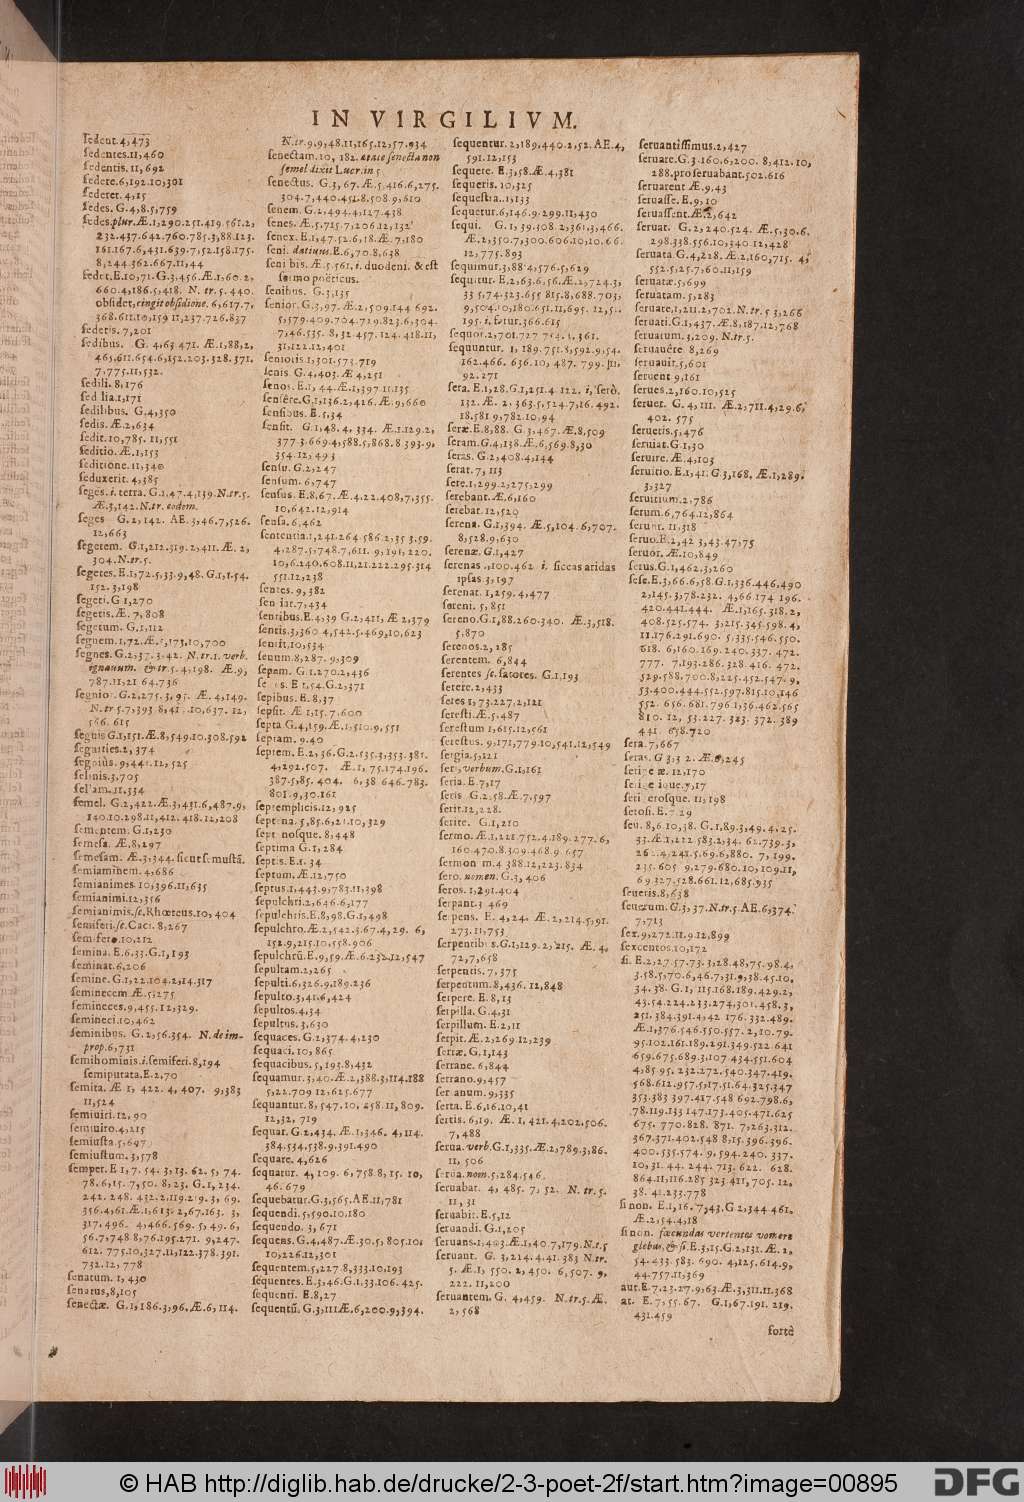 IN VIRGILIVM.
sedent.4,473
sedentes.11,460
sedentis.11,692
sedere.6,192.10,301
sederet.4,15
sedes.G.4,8.5,759
sedes plur.Æ.1,290.251.419.561.2,
232.437.642.760.785.3,88.123.
161.167.6,431.639.7,52.158.175.
8,244.362.667.11,44
sedet.E.10,71.G.3,456.Æ.1,60.2,
660.4,186.5,418. N. tr.5.440.
obsidet, cingit obsidione. 6,617.7,
368.611.10,159 11,237.726.837
sederis.7,201
sedibus. G. 4,63 471. Æ.1,88,2,
465.611.654.6,152.203.328.371.
7,775.11,532.
sedili.8,176
sedilia.1,171
sedilibus. G.4,350
sedis.Æ.2,634
sedit.10,785.11,551
seditio.Æ.1,153
seditione.11,340
seduxerit.4,385
seges.i. terra.G.1,47.4,139.N.tr.5.
Æ.3,142.N.tr.eodem.
seges G.2,142. AE.3,46.7,526.
12,663
segetem. G.1,212.319.2,411.Æ.2,
304.N.tr.5.
segetes.E.1,72.5,33.9,48.G.1,1.54.
152.3,198
segeti.G 1,270
segetis.Æ.7,808
segetum.G.1,112
segnem.1,72.Æ.1,173.10,700
segnes.G.2,37.3.42. N.tr.1. verb.
ignauum. & tr.5.4,198. Æ.9,
787.11,21 64.736
segnior.G.2,275.3,95. Æ.4,149.
N.tr 5.7,393 8,41 .10,637. 12,
566. 615
segnis G.1,151.Æ.8,549.10.308.592
segnities.2,374
segniùs.9,441.12,525
selinis.3,705
sellam.11,334
semel. G.2,422.Æ.3,431.6,487.9,
140.10.298.11,412.418.12,208
sementem.G.1,230
semesa.Æ.8,297
semesam.Æ.3,344. sicut semustā.
semianimem.4,686
semianimes.10,396.11,635
semianimi.12,356
semianimis,sc.Rhœteus.10,404
semiferi.sc.Caci.8,267
semifero.10,212
semina.E.6,33.G.1,193
seminat.6,206
semine.G.1,22.104.2,14.317
seminecem Æ.5,275
semineces.9,455.12,329.
semineci.10,462
seminibus. G.2,56.354. N. de im-
prop.6,731
semihominis.i.semiferi.8,194
semiputata.E.2,70
semita. Æ 1, 422. 4, 407. 9,383
11,524
semiuiri.12,90
semiuiro.4,215
semiusta.5,697
semiustum.3,578
semper. E 1, 7. 54. 3, 13. 62. 5, 74.
78.6,15.7,50.8,23. G.1,234.
242.248.432.2,119.219.3,69.
356.4,61.Æ.1,613.2,67.163. 3,
317.496. 4,466.569.5,49.6,
56.7,748 8,76.195.271. 9,247.
612. 775.10,327.11,122.378.391.
732.12, 778
senatum.1,430
senatus,8,105
senectæ. G.1,186.3,96.Æ.6,114.
N.tr.9.9,48.11,165.12,57.934
senectam.10, 182. etate senecta non
semel dixit Lucr.in 5
senectus. G.3,67.Æ.5,416.6,275.
304.7,440.451.8,508.9,610
senem.G.2,494.4,127.438
senes.Æ.5,715.7,206.12,132
senex.E.1,47.52.6,18.Æ.7,180
seni. datiuus.E.6,70.8,638
seni bis.Æ.5.561,i.duodeni.&est
sermo poëticus.
senibus. G.3,135
senior.G.3,97.Æ.2,509.144 692.
5,579.409.704.719.823.6,304.
7,46.535.8,32.457.124.418.11,
31,122.12,401
senioris 1,301.573.719
senis.G.4,403.Æ 4,251
senos.E.1,44.Æ.1,397.11.135
sensêre.G.1,136.2,416.Æ.9,660
sensibus.E.5,34
sensit. G.1,48.4, 334. Æ.1.129.2,
377.3.669.4,588.5,868.8.393.9,
354.12,493
sensu.G.2,247
sensum.6,747
sensus.E.8,67.Æ.4,22.408,7,355.
10,642.12,914
sensa.6,462
sententia.1,241.264.586.2,35 3.59.
4,287.5,748.7,611. 9,191,220.
10,6.240.608.11,21.222.295.314
551.12,238
sentes.9,382
sentiat.7,434
sentibus.E.4,39 G.2,411,Æ.2,379
sentis.3,360 4,542.5.469,10,623
sensit.10,534
senum.8,287. 9,309
sepem. G.1.270.2,436
E 1,54.G.2,371
sepibus.E.8,37
sepsit.Æ 1,15.7.600
septa G.4,159.Æ.1,510.9,551
septam.9.40
septem.E.2,36.G.2.535.3,353.381.
4,292.507. Æ.1, 75.174.196.
387.5,85.404. 6,38 646.783.
801.9,30.161
septemplicis.12,925
septena.5,85.6,21.10,329
septenosque.8,448
septima G.1,284
septis.E.1.34
septum.Æ.12,750
septus.1,443.9,783.11,398
sepulchri.2,646.6,177
sepulchris.E.8,98.G.1,498
sepulchro.Æ.2,542.3.67.4,29. 6,
152.9,215.10,558.906
sepulchrū.E.9,59.Æ.6.232.12,547
sepultam.2,265
sepulti.6,326.9,189.236
sepulto.3,41.6,424
sepultos.4,34
sepultus,3,630
sequaces.G.2,374.4,230
sequaci.10,865
sequacibus.5,193.8,432
sequamur.3,40.Æ.2,388.3,114.188
5,22.709 12,625.677
sequantur.8,547.10,258.11,809.
12,32,719
sequar.G.2,434.Æ.1,346. 4,114.
384.534.538.9,391.490
sequare.4,626
sequatur. 4,109. 6,758.8,15. 10,
46.679
sequebatur.G.3,565.AE.11,781
sequendi.5,590.10,180
sequendo.3,671
sequens.G.4,487.Æ.30.5,805.10,
10,226.12,301
sequentem.5,227.8,333.10,193
sequentes.E.3,46.G.1.33.106.425.
sequenti.E.8,27
sequentū.G.3,111Æ.6,200.9,394.
sequentur.2,189,440.2,52.AE.4,
591.12,153
sequere. E.3,58.Æ.4,381
sequeris.10,325
sequestra.1,133
sequetur.6,146.9,299.11,430
sequi. G.1,39.508.2,361.3,466.
Æ.2,350.7,300.606.10,10.66.
12,775.893
sequimur.3,88.4,576.5,629
sequitur.E.2,63.6,56.Æ.2,724.3,
33 5,74.323.655 815.8,688.703,
9,504.10,180.651.11,695. 12,5.
195.i. fetur.366.615
sequor.2,701.727 754. 1,361.
sequuntur. 1, 189.751.8,592.9,54.
162.466. 636.10, 487. 799.111,
92.271
sera.E.1,28.G.1,251.4.122. i. serò.
132.Æ. 2,363.5,524.7,16.492.
18.581 9,782.10,94
seræ.E.8,88. G.3,467.Æ.8,509
seram.G.4,138.Æ.6,569.8,30
seras.G.2,408.4,144
serat.7,113
sere.1,299.2,275,299
serebant.Æ.6,160
serebat.12,520
serena.G.1,394. Æ.5,104.6,707.
8,528.9,630
serenæ.G.1,427
serenas.,100.462 i. siccas aridas
ipsas 3,197
serenat.1,259.4,477
sereni.5,851
sereno.G.1,88.260.340. Æ.3,518.
5,870
serenos.2,285
serentem. 6,844
serentes sc.satores. G.1,193
serere.2,433
seres 1,73.227.2,121
seresti.Æ.5,487
serestum 1,615.12,561
serestus.9,171,779.10,541.12,549
sergia.5,121
seri,verbum.G.1,161
seria.E.7,17
seris G.2,58.Æ.7,597
serit.12,228.
serite. G.1,210
sermo.Æ.1,221.752.4.189.277.6,
160.470.8.309.468.9.657
sermonem.4.388.12,223.834
sero.nomen.G.3,406
seros.1,291.404
serpant.3.469
serpens. E. 4,24. Æ.2,214.5,91.
273.11,753
serpentibus.G.1,129.2,215. Æ.4,
72.7,658
serpentis.7,375
serpentum.8,436.12,848
serpere.E.8,13
serpilla.G.4,31
serpillum.E.2,11
serpit.Æ.2,269.12,239
serræ.G.1,143
serrane.6,844
serrano.9,457
serranum.9,335
serta.E.6,16.10,41
sertis.6,19. Æ.1,421.4,202.506.
7,488
serua.verb.G.1,335.Æ.2,789.3,86.
11,506
serua.nom.5,284.546
seruabat. 4,485.7,52. N. tr.5.
11,31
seruabit.E.5,12
seruandi.G.1,205
seruans.1,403 Æ.1,40.7,179.N.t.5
seruant. G.3,214.4.41.383 N.tr.
5.Æ.1, 550.2,450. 6,507.9,
222.11,200
seruantem.G.4,459. N.tr.5.Æ.
2,568
seruantissimus.2,427
seruare.G.3.160.6,200.8,412.10,
288.pro seruabant.502.616
seruarent Æ.9,43
seruasse.E.9,10
seruassent.Æ.2,642
seruat. G.2,240.524. Æ.5,30.6,
298.338.556.10,340.12,428
seruata.G.4,228.Æ.2,160,715. 4,
552.5,25.7,60.11,159
seruatæ.5,699
seruatam.5,283
seruate,1,211.2,702.N.tr.5 3,266
seruati.G.1,437.Æ.8,187.12,768
seruatum.3,209.N.tr.5.
seruauêre.8,269
seruauit.5,601
seruent.9,161
serues.2,160.10,525
seruet. G.4,111.Æ.2,711.4,29.6,
402. 575
serueris.5,476
seruiat.G.1,30
seruire.Æ.4,103
seruitio.E.1,41.G.3,168. Æ.1,289.
3,327
seruitium.2,786
serum.6,764.12,864
serunt.11,318
seruo.E.2,42.3,43.47,75
seruor.Æ.10,849
serus.G.1,462.3,260
sese.E.3,66.6,58.G.1,336.446,490
2,145.3,78.232. 4,66.174 196.
420.441.444. Æ.1,165.318.2,
408.525.574. 3,215.345.598.4,
11.176.291.690. 5,335.546.550.
618.6,160.169.240.337.472.
777. 7,193.286.328.416.472.
529.588.700.8,225.452.547.9,
53.400.444.552.597.815.10,146
552. 656.681.796.1,36.462.565
810. 12, 53.227.323.372.389
441. 658.720
seta.7,667
setas.G 3,3 2.Æ.6,245
setigeræ.12,170
7,17
setigerosque.11,198
setosi.E.7,29
seu.8,6.10,38. G.1,89.3,49.4,25.
33.Æ.1,222 583.2,34. 62.739.3,
262.4,241.5,69.6,880. 7,199.
235.605 9,279.680.10,109.11,
69.327.528.661.12,685.935
seueris.8,638
seuerum.G.3,37.N.tr.5.AE.6,374.
7,713
sex.9,272.11.9.12,899
sexcentos.10,172
si.E.2,27.57.73.3,28.48,75.98.4,
3.58.5,70.6,46.7,31.9,38.45.10,
34.38.G.1,115.168.189.429.2,
43.54.224.233.274.301.458.3,
251.384.391.4,42 176.332.489.
Æ.1,376.546.550.557.2,10.79.
95.102.161.189.291.349.522.641
659.675.689.3,107 434.551.604
4,85 95.232.272.540.347.419.
568.612.957.5,17.51.64.325.347
353.383 397.417.548 692.798.6,
78.119.133 147.173.405.471.625
675. 770.828. 871. 7,263.312.
367.371.402.548 8,15.396.396.
400.535.574. 9, 594.240. 337.
10,31.44.244. 713. 622. 628.
864.11,116.285 323 411,705.12,
38.41.233.778
si non.E.1,16.7,43.G 2,344 461.
Æ.2,54.4,18
si non. fœcundas vertentes vomere
glebas, & si.E.3,15.G.2,131.Æ.2,
54.433.583.690. 4,125.614.9,
44.757.11,369
aut.E.7.23.27.9,63.Æ.3,311.11.368
at. E.7,55.67. G.1,67.191.219.
431.459
fortè
© HAB http://diglib.hab.de/drucke/2-3-poet-2f/start.htm?image=00895
DFG